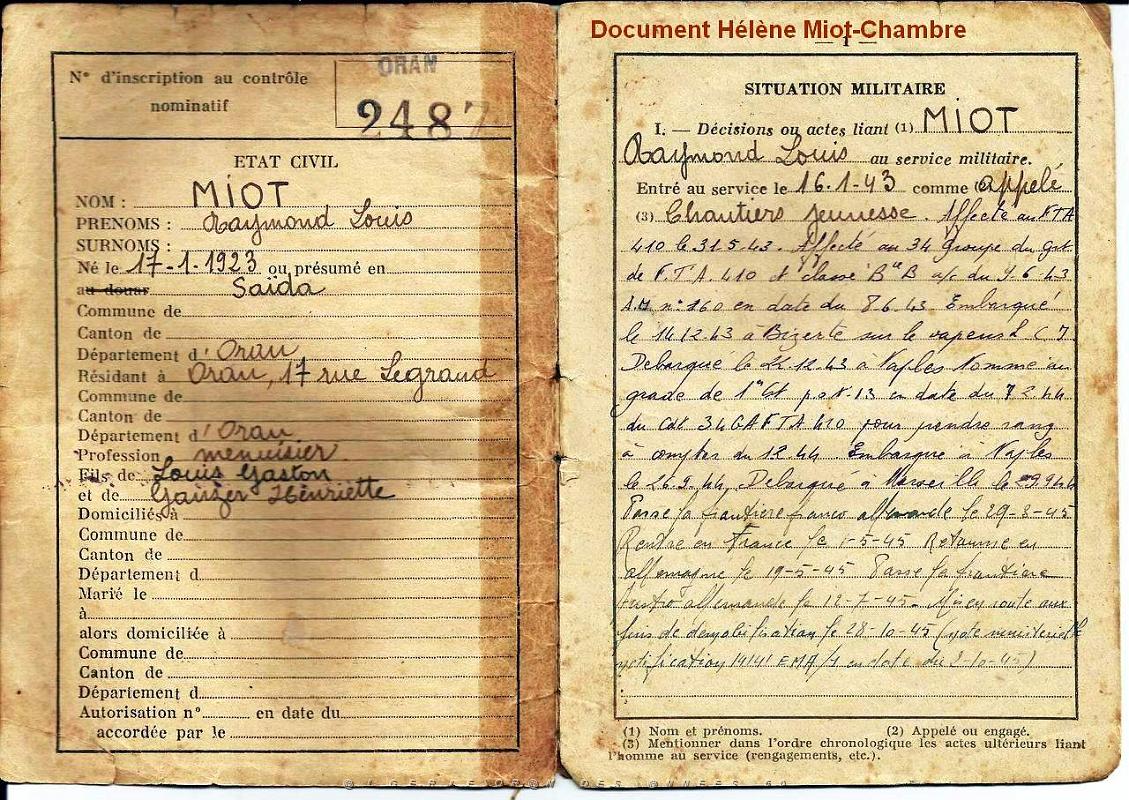 N° d'inscription au contrôle
nominatif
ORAN
2487
ETAT CIVIL
NOM : MIOT
PRENOMS : Raymond Louis
SURNOMS :
Né le 17-1-1923 ou présumé en
au douar Saïda
Commune de
Canton de
Département d'Oran
Résidant à Oran, 17 rue Legrand
Commune de
Canton de
Département d'Oran
Profession menuisier
Fils de Louis Gaston
et de Henriette
Domiciliés à
Commune de
Canton de
Département d
Marié le
à
alors domiciliée à
Commune de
Canton de
Département d
Autorisation n° en date du
accordée par le
Document Hélène Miot-Chambre
— 1 —
SITUATION MILITAIRE
I. — Décisions ou actes liant (1) MIOT
Raymond Louis au service militaire.
Entré au service le 16.1-43 comme appelé
(3) Chantiers jeunesse. Affecté au FTA
410 le 31.5.43. Affecté au 34 Groupe du
de F.T.A. 410 et classé "B" B a/c du 4.6.43
n° 160 en date du 8.6.43 Embarqué
le 14.12.43 à Bizerte sur le vapeur
Debarque le 22.12.43 à Naples Nommé au
grade de 1° en date du 7.2.44
du 34 GAFTA 410 pour prendre rang
à compter du 1.2.44 Embarque à Naples
le 26.9.44, Debarqué à Marseille le
Passe la frontière franco allemande le 29-3-45
Rentre en France le 1-5-45 Retourne en
allemagne le 19-5-45 Passe la frontière
Austro allemande le 12-7-45. Mis en route aux
fins de démobilisation le 28-10-45 (note ministerielle
notification 19141 EMA/1 en date du 2-10-45)
(1) Nom et prénoms. (2) Appelé ou engagé.
(3) Mentionner dans l'ordre chronologique les actes ultérieurs liant
l'homme au service (rengagements, etc.).